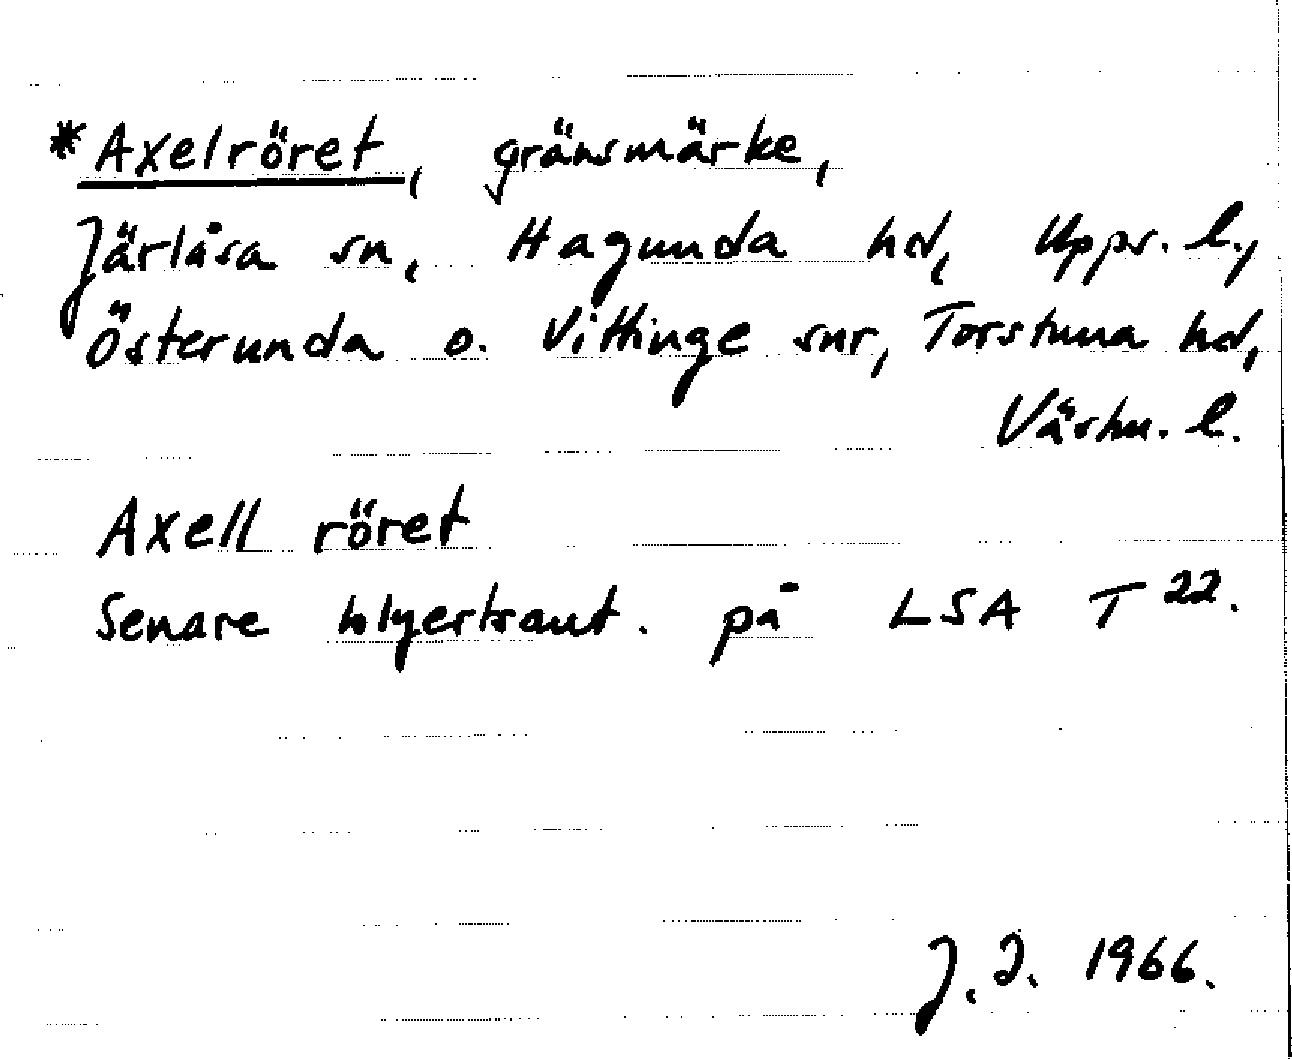 *Axelröret, gränsmärke,
Järlåsa sn, Hagunda hd, Upps. l.,
Österunda o. Vittinge snr, Torstuna hd,
Västm. l.
Axell röret
Senare blyertsant. på LSA T 22.
J. I. 1966.